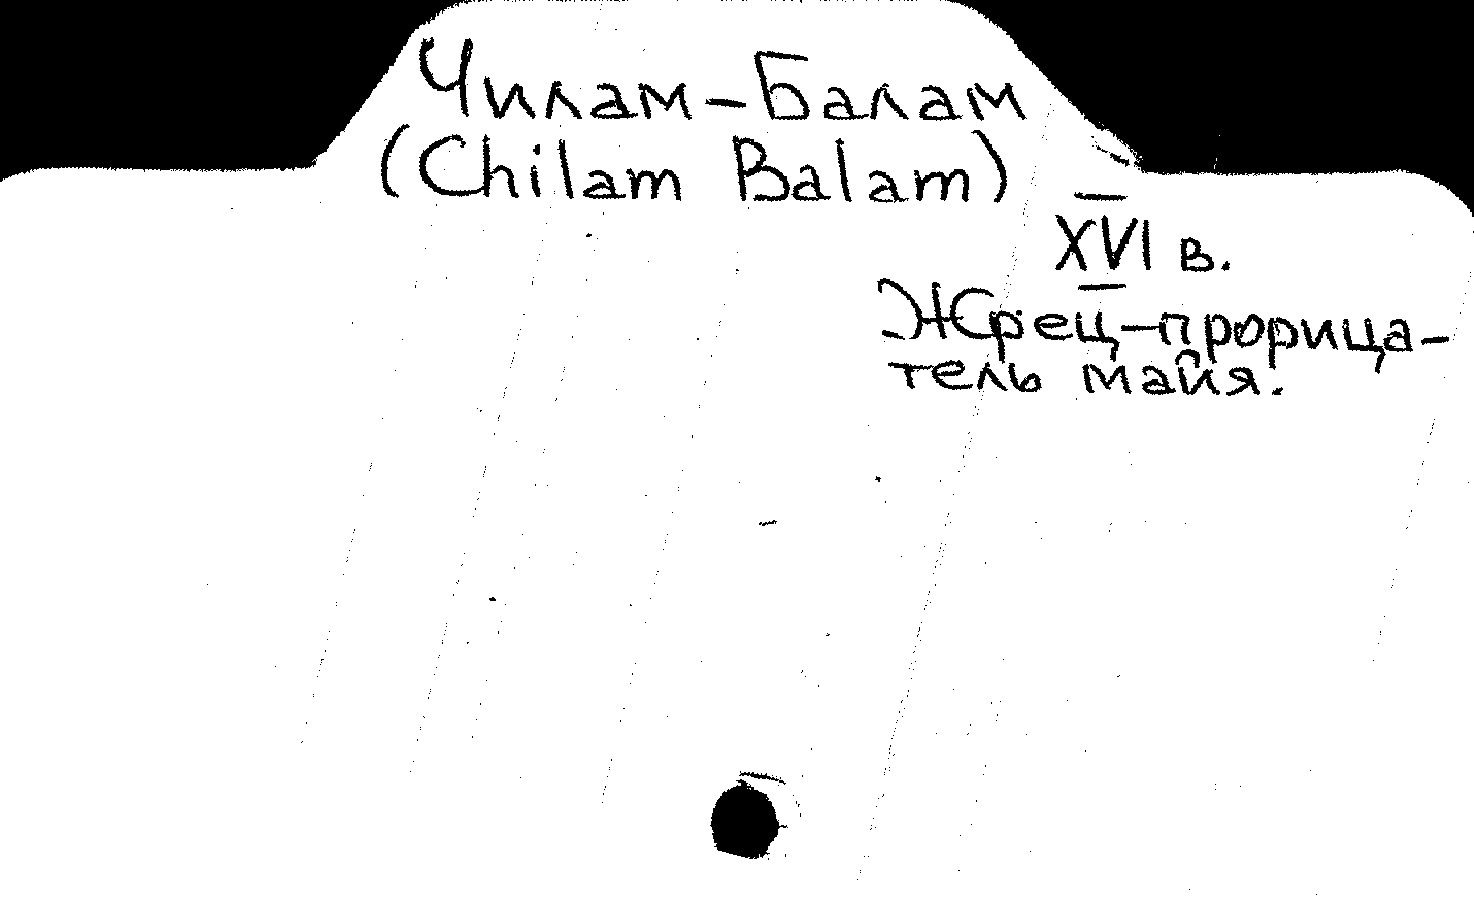 Чилам-Балам
(Chilam Balam)
XVI в.
Жрец-прорица-
тель майя.